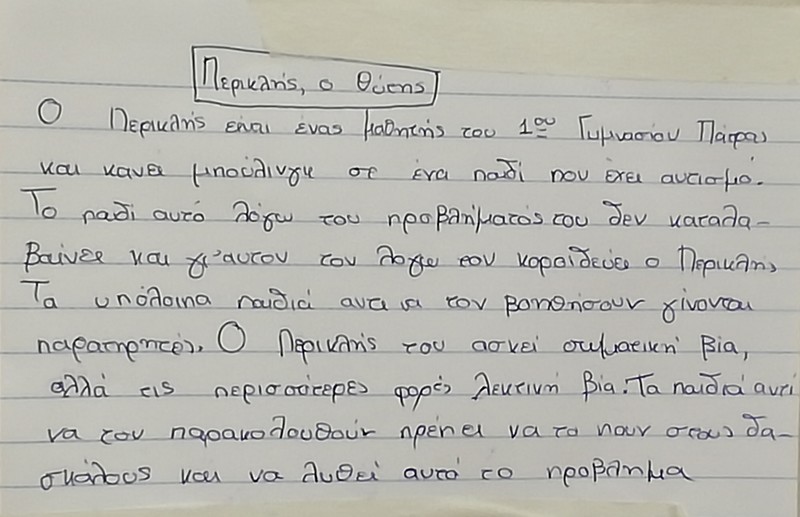 Περικλής, ο θύτης
Ο Περικλής είναι ένας μαθητής του 1ου Γυμνασίου Πάτρας
και κανει μπούλινγκ σε ένα παιδί που έχει αυτισμό.
Το παιδί αυτό λόγω του προβλήματός του δεν καταλα-
βαίνει και γι'αυτον τον λόγω τον κοροϊδεύει ο Περικλής
Τα υπόλοιπα παιδιά αντι να τον βοηθήσουν γίνονται
παρατηρητές. Ο Περικλής του ασκεί σωματική βία,
αλλά τις περισσότερες φορές λεκτική βία. Τα παιδιά αντί
να τον παρακολουθούν πρέπει να το πουν στους δα-
σκάλους και να λυθεί αυτό το πρόβλημα